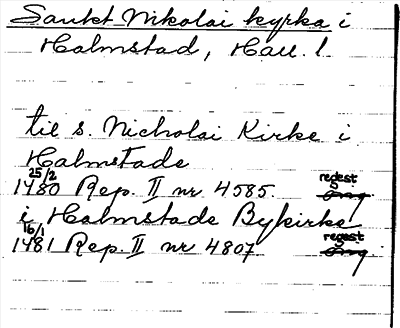 Sankt Nikolai kyrka i
Halmstad, Hall. l.
til s. Nicholai Kirke i
Halmstade
25/2
1480 Rep. II nr 4585. regest
i Halmstade Bykirke
16/1
1481 Rep. II nr 4807 regest